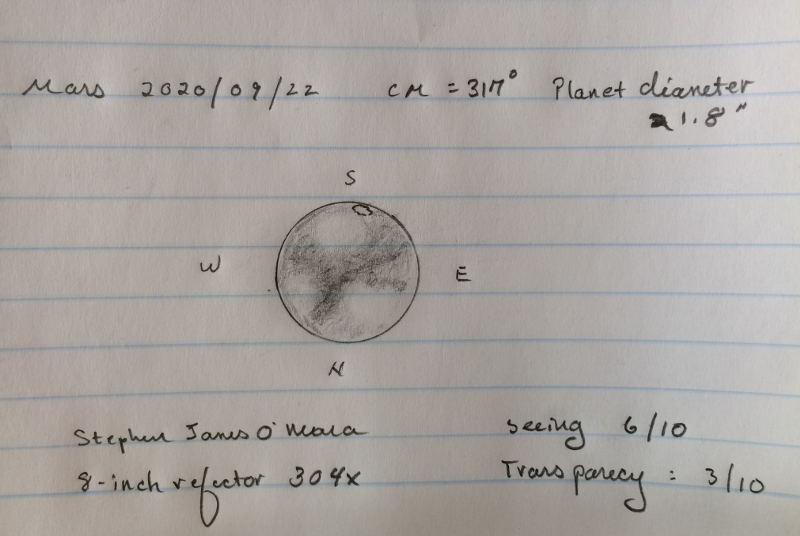 Mars 2020/09/22 CM = 317° Planet diameter
21.8"
S
W E
N
Stephen James O'Meara seeing 6/10
8-inch refractor 304x Transparecy : 3/10